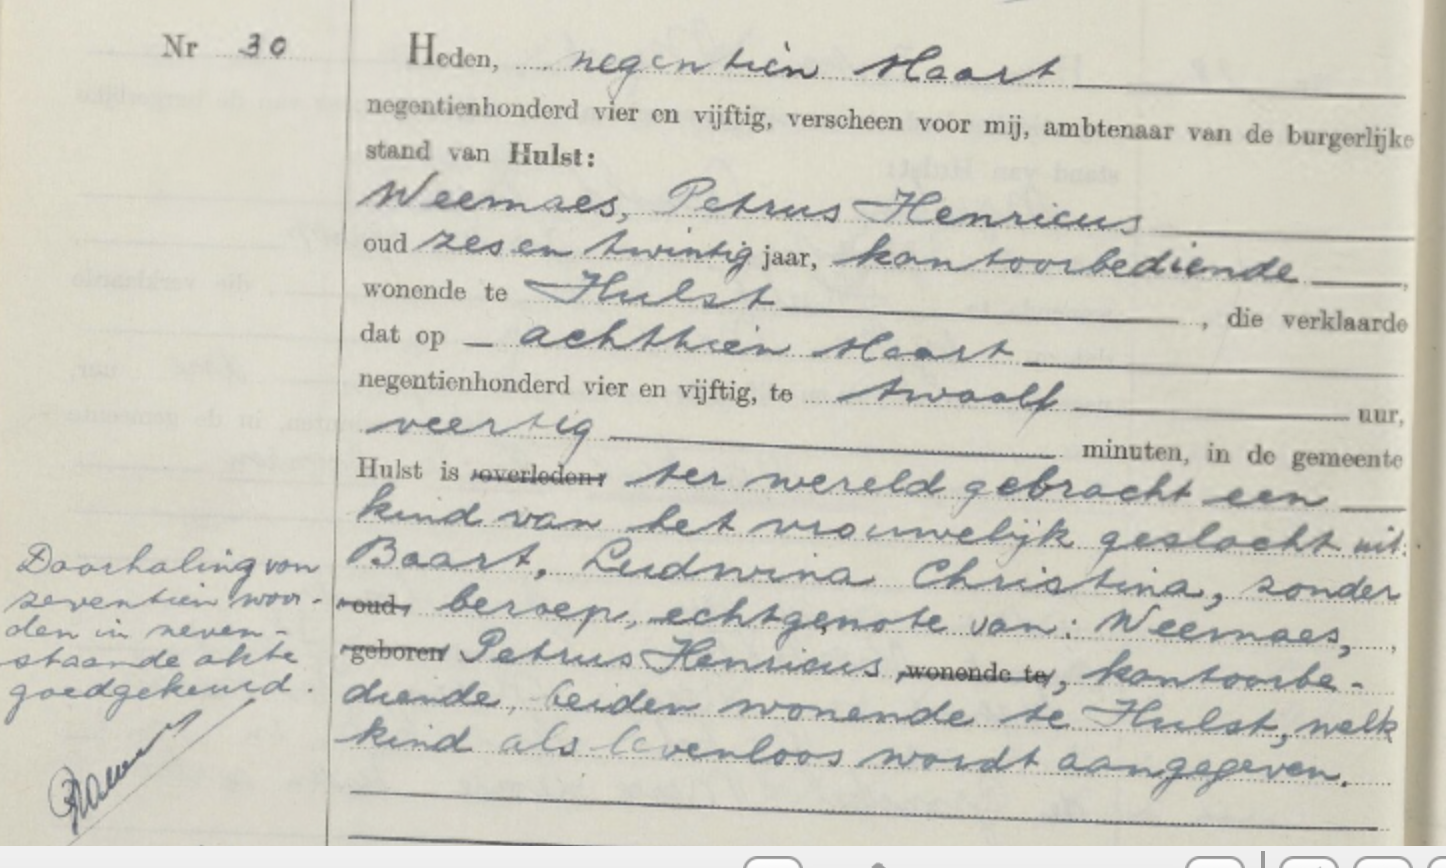 Nr 30
Heden, negentien Maart
negentienhonderd vier en vijftig, verscheen voor mij, ambtenaar van de burgerlijke
stand van Hulst:
Weemaes, Petrus Henricus
oud zes en twintig jaar, kantoorbediende,
wonende te Hulst, die verklaarde
dat op achttien Maart
negentienhonderd vier en vijftig, te twaalf uur,
veertig minuten, in de gemeente
Hulst is overleden: ter wereld gebracht een
kind van het vrouwelijk geslacht uit:
Baart, Ludwina Christina, zonder
oud, beroep, echtgenote van: Weemaes,
geboren Petrus Henricus, wonende te, kantoorbe-
diende, beiden wonende te Hulst, welk
kind als levenloos wordt aangegeven.
Doorhaling van
zeventien woor-
den in neven-
staande akte
goedgekeurd.